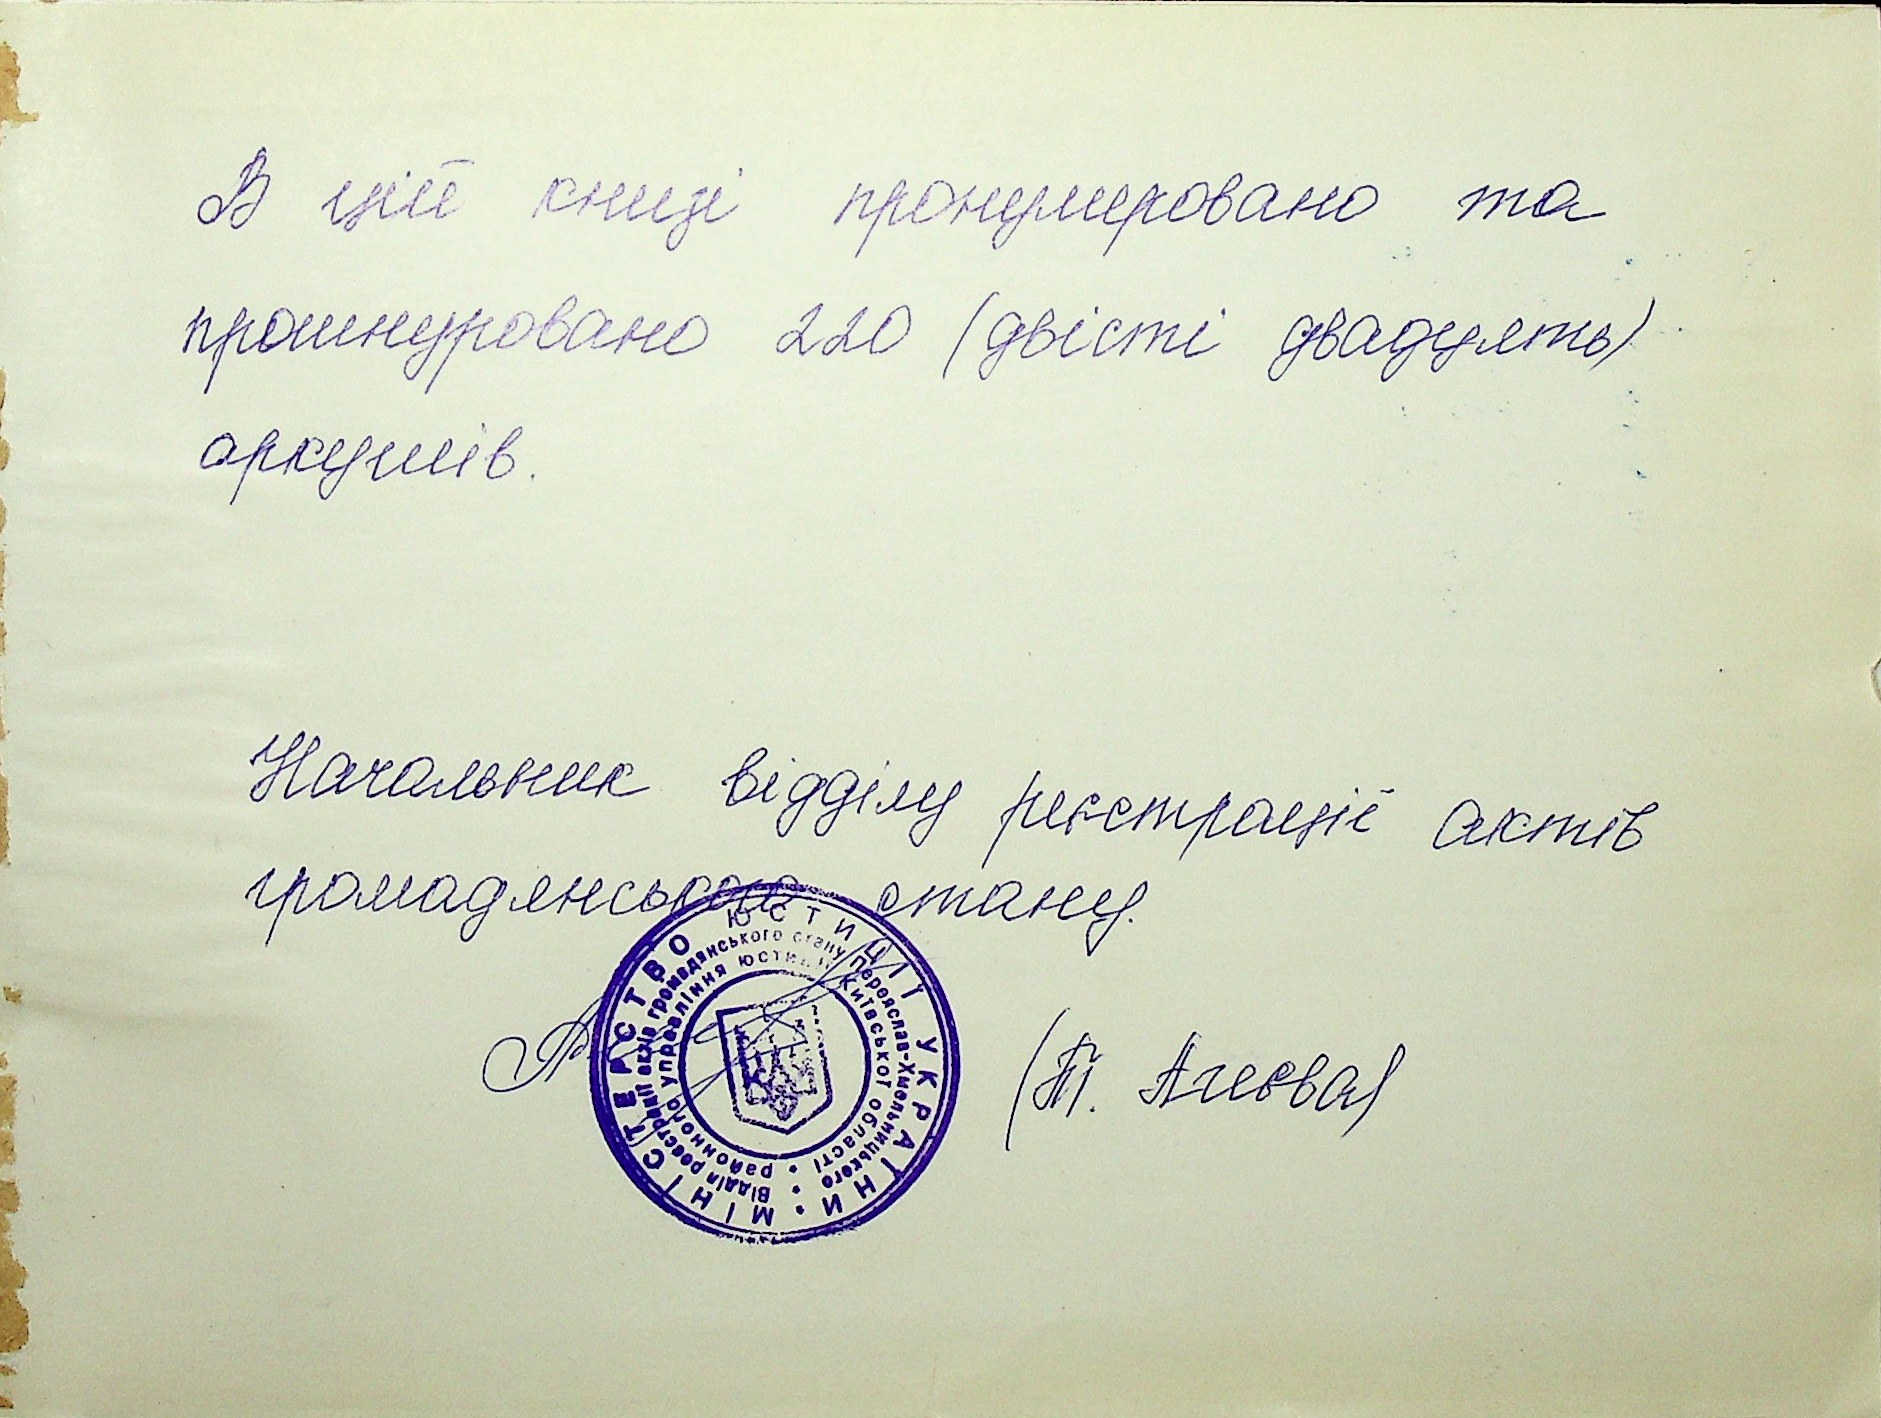 В цій книзі пронумеровано та
прошнуровано 220 (двісті двадцять)
аркушів.
Начальник відділу реєстрації актів
громадянського стану.
(Т. Агеєва)
МІНІСТЕРСТВО ЮСТИЦІЇ УКРАЇНИ
Відділ реєстрації актів громадянського стану Переяслав-Хмельницького
районного управління юстиції Київської області